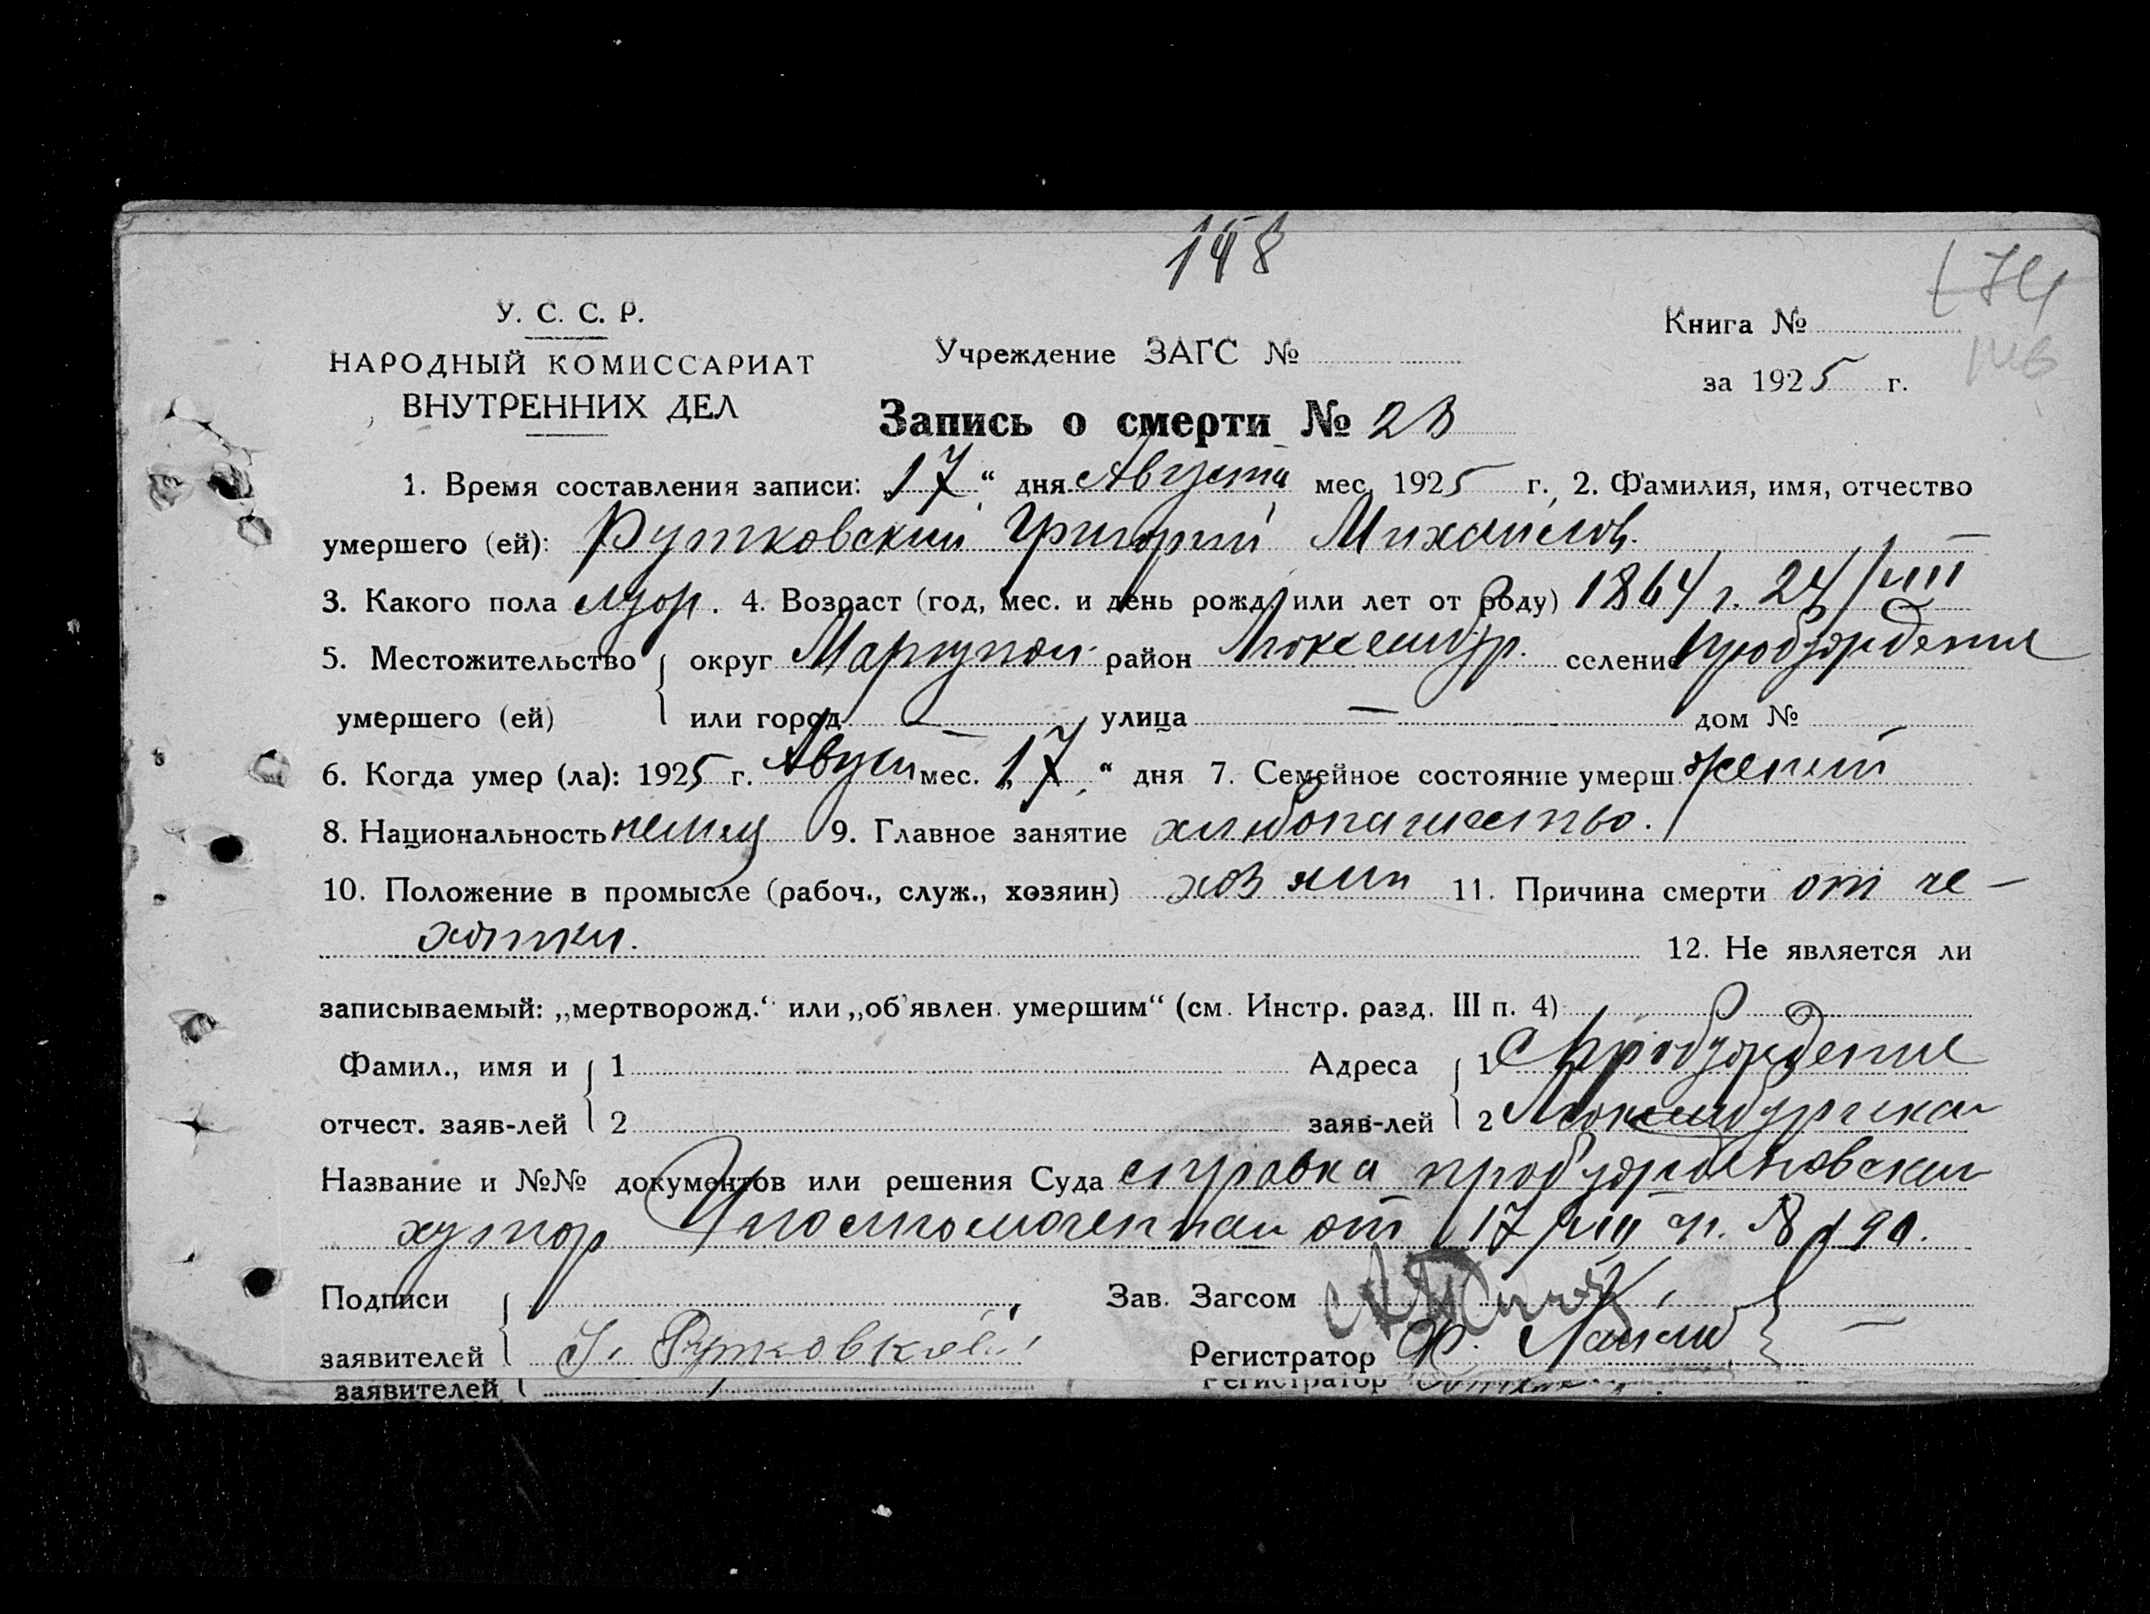 148
174
У. С. С. Р.
НАРОДНЫЙ КОМИССАРИАТ
ВНУТРЕННИХ ДЕЛ
Учреждение ЗАГС №
Книга №
за 1925 г.
Запись о смерти № 23
1. Время составления записи: „17“ дня Августа мес. 1925 г. 2. Фамилия, имя, отчество
умершего (ей): Рутковский Григорий Михайлов.
3. Какого пола муж. 4. Возраст (год, мес. и день рожд. или лет от роду) 1864 г. 24/VIII
5. Местожительство округ Мариупол. район Люксембур. селение Пробуждения
умершего (ей) или город — улица — дом №
6. Когда умер (ла): 1925 г. Август мес. „17“ дня 7. Семейное состояние умерш. женат
8. Национальность немец 9. Главное занятие хлебопашество.
10. Положение в промысле (рабоч., служ., хозяин) хозяин 11. Причина смерти от че-
хотки. 12. Не является ли
записываемый: „мертворожд.“ или „об'явлен. умершим“ (см. Инстр. разд. III п. 4)
Фамил., имя и 1 Адреса 1 с Пробуждения
отчест. заяв-лей 2 заяв-лей 2 Люксембургска
Название и №№ документов или решения Суда справка пробужденовскаи
хутор от 17/VIII № 190.
Подписи Зав. Загсом
заявителей Рутковский Регистратор Ф.
заявителей Регистратор